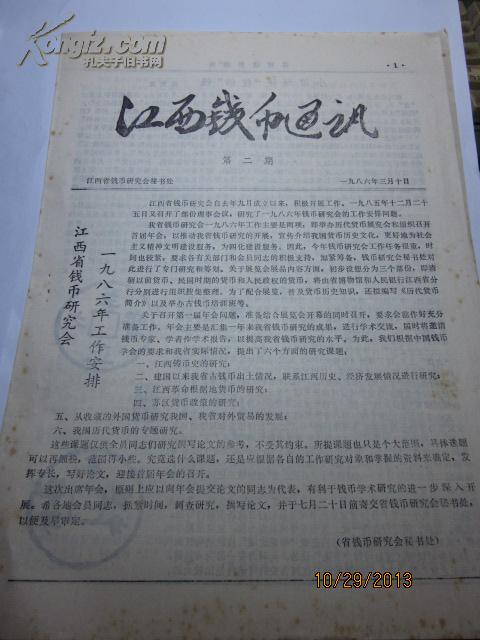 Kongfz.com
孔夫子旧书网
·1·
江西钱币通讯
第二期
江西省钱币研究会秘书处
一九八六年三月十日
江西省钱币研究会
一九八六年工作安排
江西省钱币研究会自去年九月成立以来,积极开展工作。一九八五年十二月二十
五日又召开了部份理事会议,研究了一九八六年钱币研究会的工作安排问题。
我省钱币研究会一九八六年工作主要是两项:即举办历代货币展览会和组织召开
首届年会,以推动我省钱币研究的开展,宣传介绍我国货币历史文化,更好地为社会
主义精神文明建设服务,为四化建设服务。因此,今年钱币研究会工作任务很重,时
间也较紧,要求各有关部门和会员同志的积极支持,加紧筹备,钱币研究会秘书处对
此进行了专门研究和筹划。关于展览会展品内容方面,初步设想分为三个部份,即清
朝以前货币、民国时期的货币和人民政权的货币,将由省博物馆和人民银行江西省分
行分别进行组织搜集整理。为了配合展览,普及货币历史知识,还拟编写《历代货币
简介》以及举办古钱币培训班等。
关于召开第一届年会问题,准备结合展览会开幕的同时召开,要求会前作好充分
准备工作,年会主要是汇集一年来我省钱币研究的成果,进行学术交流,届时将邀请
钱币专家、学者作学术报告,以提高我省钱币研究的水平。为此,我们根据中国钱币
学会的要求和我省实际情况,提出了六个方面的研究课题:
一、江西铸币史的研究;
二、建国以来我省古钱币出土情况,联系江西历史、经济发展情况进行研究;
三、江西革命根据地货币的研究;
四、苏区货币政策的研究;
五、从收藏的外国货币研究我国、我省对外贸易的发展;
六、我国历代货币的专题研究。
这些课题仅供会员同志们研究撰写论文的参考,不受其约束。所提课题也只是个大范围,具体选题
可以再题独,范围再小些。究竟选什么课题,还是应根据各自的工作研究对象和掌握的资料来选定,发
挥专长,写好论文,迎接首届年会的召开。
这次出席年会,原则上应以向年会提交论文的同志为代表,有利于钱币学术研究的进一步深入开
展。希各地会员同志,抓紧时间,调查研究,撰写论文,并于七月二十日前寄交省钱币研究会秘书处,
以便及早审定。
(省钱币研究会秘书处)
10/29/2013